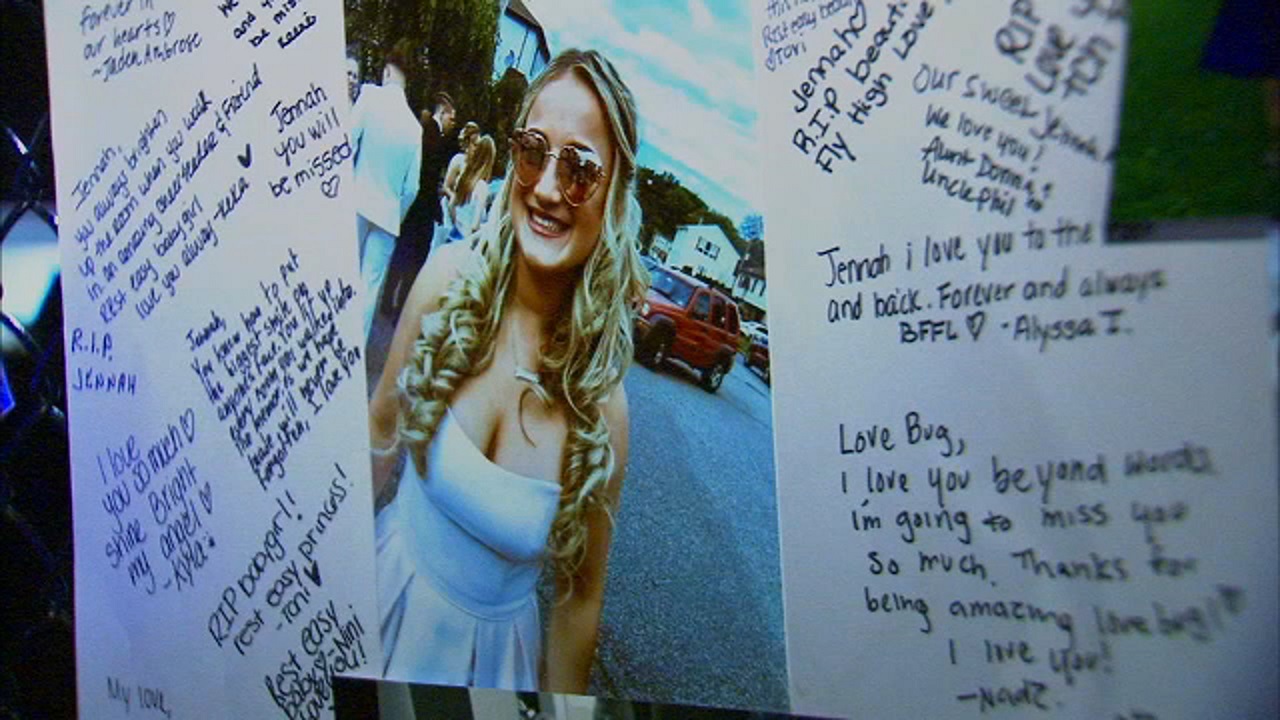 Forever in
our hearts
~Jaden Ambrose
and
be
Jennah,
you always brighten
up the room when you walk
in an amazing cheerleader & friend
Rest easy baby girl
love you always -Keka
Jennah
you will
be missed
R.I.P.
JENNAH
Jennah,
You knew how to put
the biggest smile on
anyone's face. You lit up
every room you walked into.
The memories we have
made will never be
forgotten,
I love you
I love
you so much
shine Bright
my angel
-Kyla
RIP babygirl!!
rest easy princess!
-Toni
Rest easy
baby -Nini
love you!
My love,
Rest easy
Tori
Jennah
R.I.P beauti
Fly High Love
RIP
Love
Our Sweet Jennah,
We love you!
Aunt Donna &
Uncle Phil
Jennah i love you to the
and back. Forever and always
BFFL -Alyssa I.
Love Bug,
I love you beyond words.
i'm going to miss you
so much. Thanks for
being amazing love bug!
I love you!
-Nadz